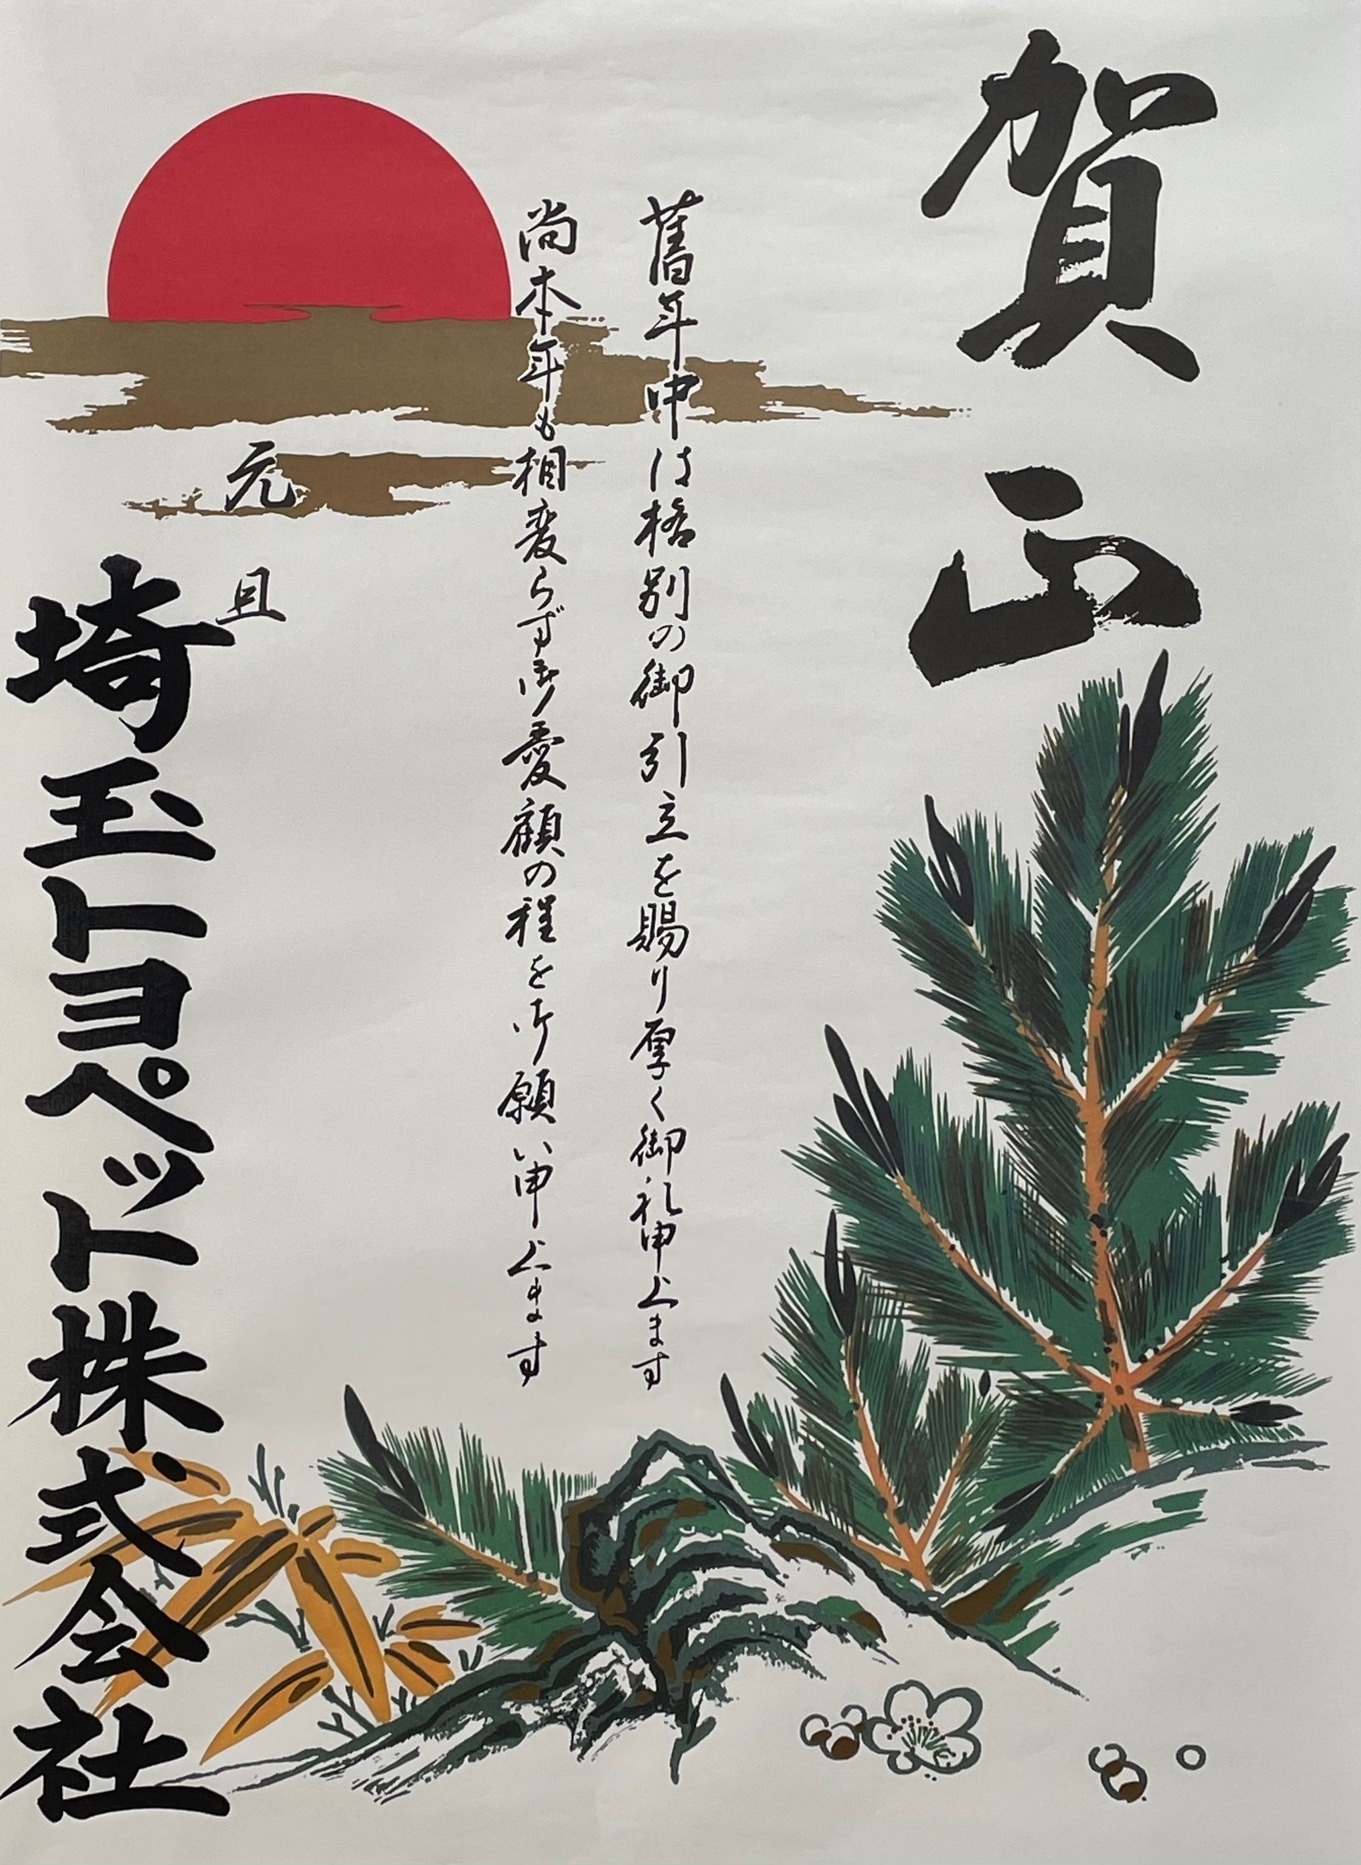 賀正
舊年中は格別の御引立を賜り厚く御礼申上ます
尚本年も相変らず御愛顧の程を御願い申上ます
元旦
埼玉トヨペット株式会社